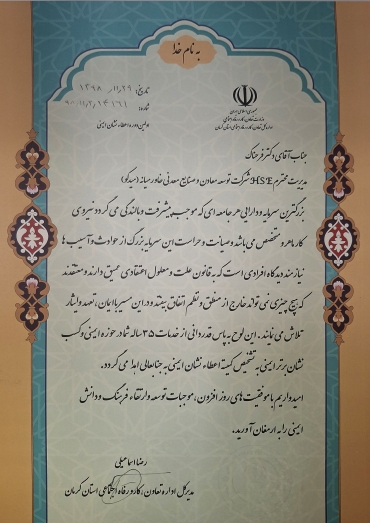 به نام خدا
تاریخ: ۱۳۹۸/۱۱/۲۶
شماره:
اولین دوره اعطاء نشان ایمنی
جمهوری اسلامی ایران
وزارت تعاون، کار و رفاه اجتماعی
اداره کل تعاون، کار و رفاه اجتماعی استان کرمان
جناب آقای دکتر فرهنگ
مدیریت محترم HSE شرکت توسعه معادن و صنایع معدنی خاورمیانه (میدکو)
بزرگترین سرمایه و دارایی هر جامعه ای که موجب پیشرفت و بالندگی می گردد نیروی
کار ماهر و متخصص می باشد و صیانت و حراست این سرمایه بزرگ از حوادث و آسیب ها
نیازمند دیدگاه افرادی است که به قانون علت و معلول اعتقادی عمیق دارند و معتقدند
که هیچ چیزی نمی تواند خارج از منطق و نظم اتفاق بیفتد و در این مسیر با ایمان، تعهد و ایثار
تلاش می نمایند. این لوح به پاس قدردانی از خدمات ۳۵ ساله شما در حوزه ایمنی و کسب
نشان برتر ایمنی به تشخیص کمیته اعطاء نشان ایمنی به جنابعالی اهدا می گردد.
امیدواریم با موفقیت های روز افزون، موجبات توسعه و ارتقاء فرهنگ و دانش
ایمنی را به ارمغان آورید.
رضا اسماعیلی
مدیرکل اداره تعاون، کار و رفاه اجتماعی استان کرمان